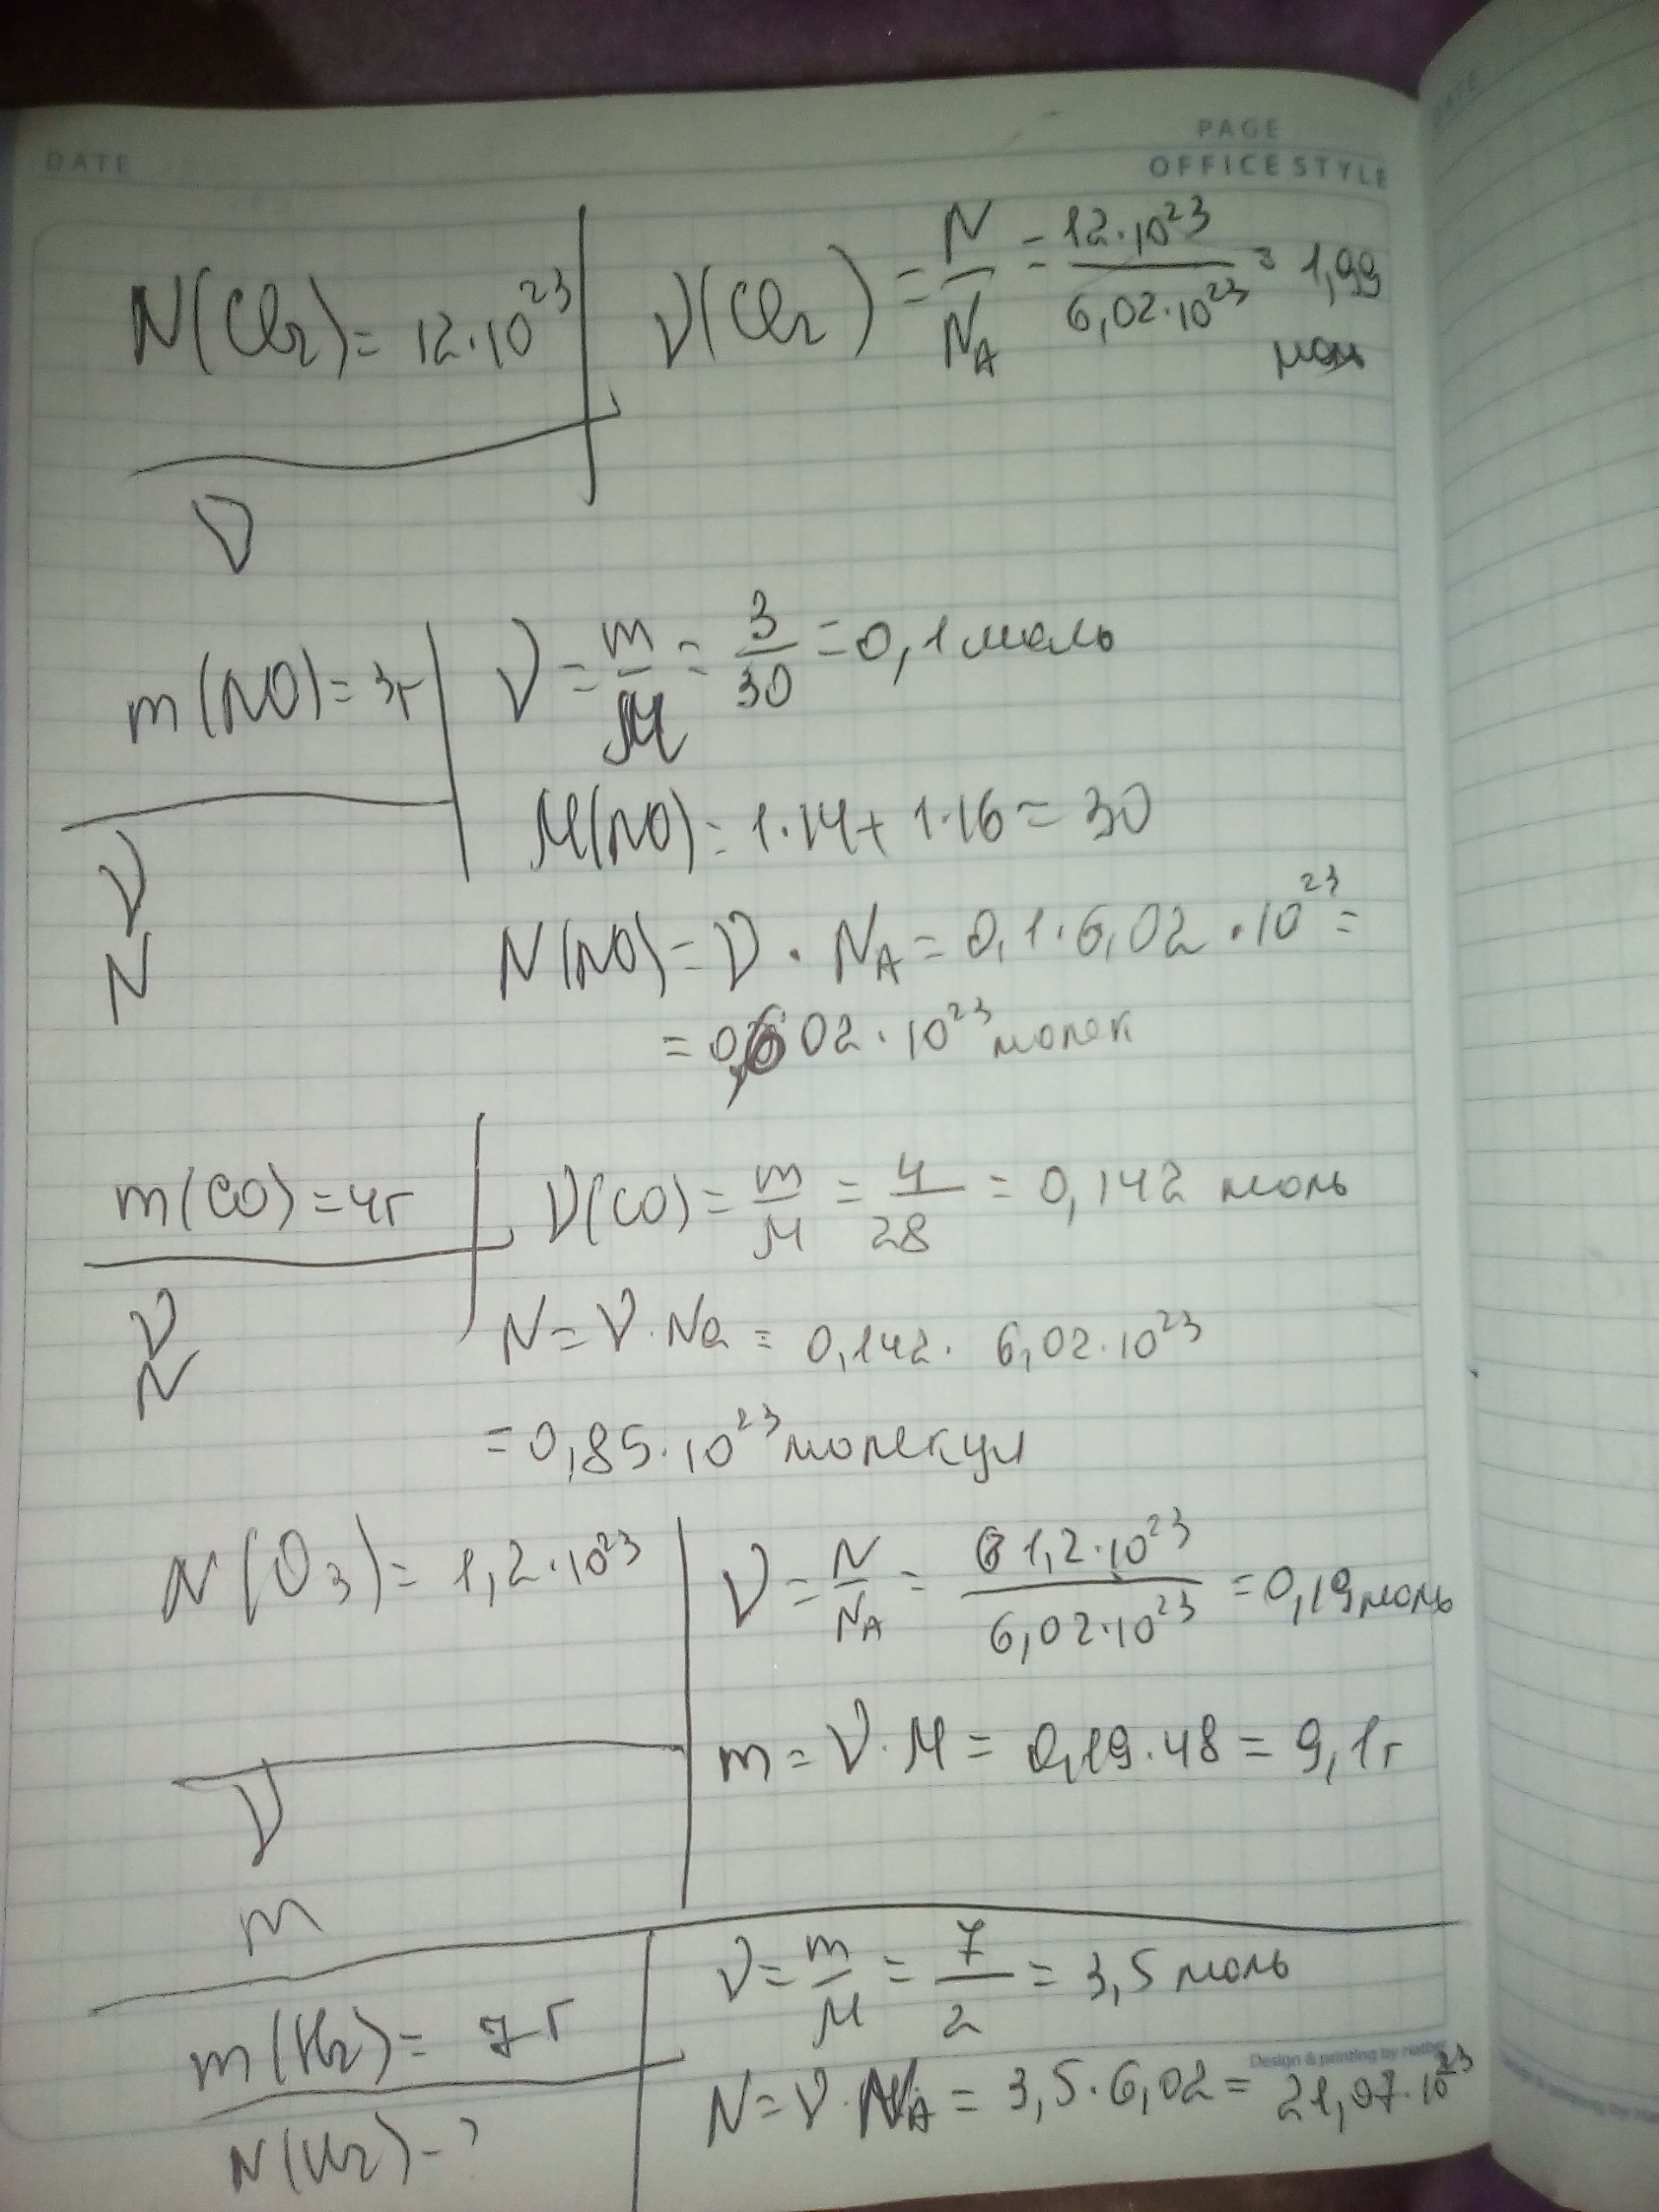 DATE
PAGE
OFFICE STYLE
N(Cl₂) = 12·10²³
ν(Cl₂) = N/N_A = 12·10²³/6,02·10²³ = 1,99
моль
ν
m(NO) = 3г
ν = m/M = 3/30 = 0,1 моль
M(NO) = 1·14 + 1·16 = 30
ν
N
N(NO) = ν · N_A = 0,1·6,02·10²³ =
= 0,602·10²³ молек
m(CO) = 4г
ν(CO) = m/M = 4/28 = 0,142 моль
ν
N
N = ν·Na = 0,142 · 6,02·10²³
= 0,85·10²³ молекул
N(O₃) = 1,2·10²³
ν = N/N_A = 1,2·10²³/6,02·10²³ = 0,19 моль
m = ν·M = 0,19·48 = 9,1г
ν
m
m(H₂) = 7г
ν = m/M = 7/2 = 3,5 моль
Design & printing by
N = ν·N_A = 3,5·6,02 = 21,07·10²³
N(H₂) - ?